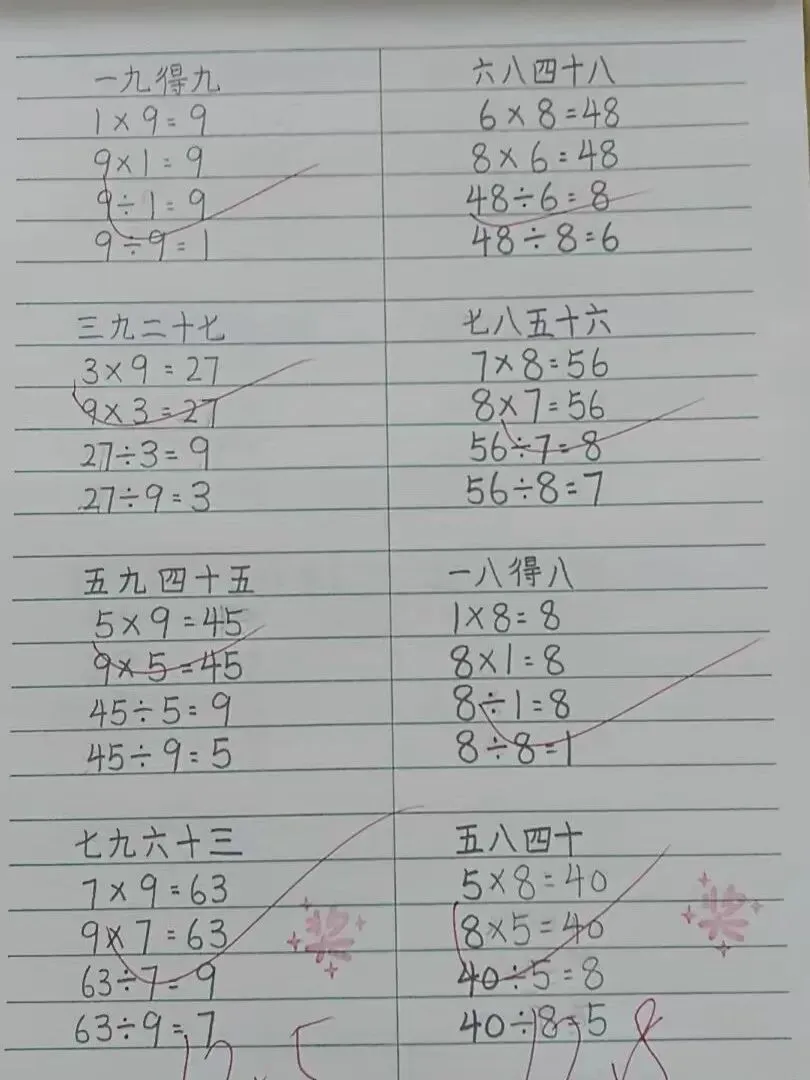 一九得九
1×9=9
9×1=9
9÷1=9
9÷9=1
三九二十七
3×9=27
9×3=27
27÷3=9
27÷9=3
五九四十五
5×9=45
9×5=45
45÷5=9
45÷9=5
七九六十三
7×9=63
9×7=63
63÷7=9
63÷9=7
六八四十八
6×8=48
8×6=48
48÷6=8
48÷8=6
七八五十六
7×8=56
8×7=56
56÷7=8
56÷8=7
一八得八
1×8=8
8×1=8
8÷1=8
8÷8=1
五八四十
5×8=40
8×5=40
40÷5=8
40÷8=5